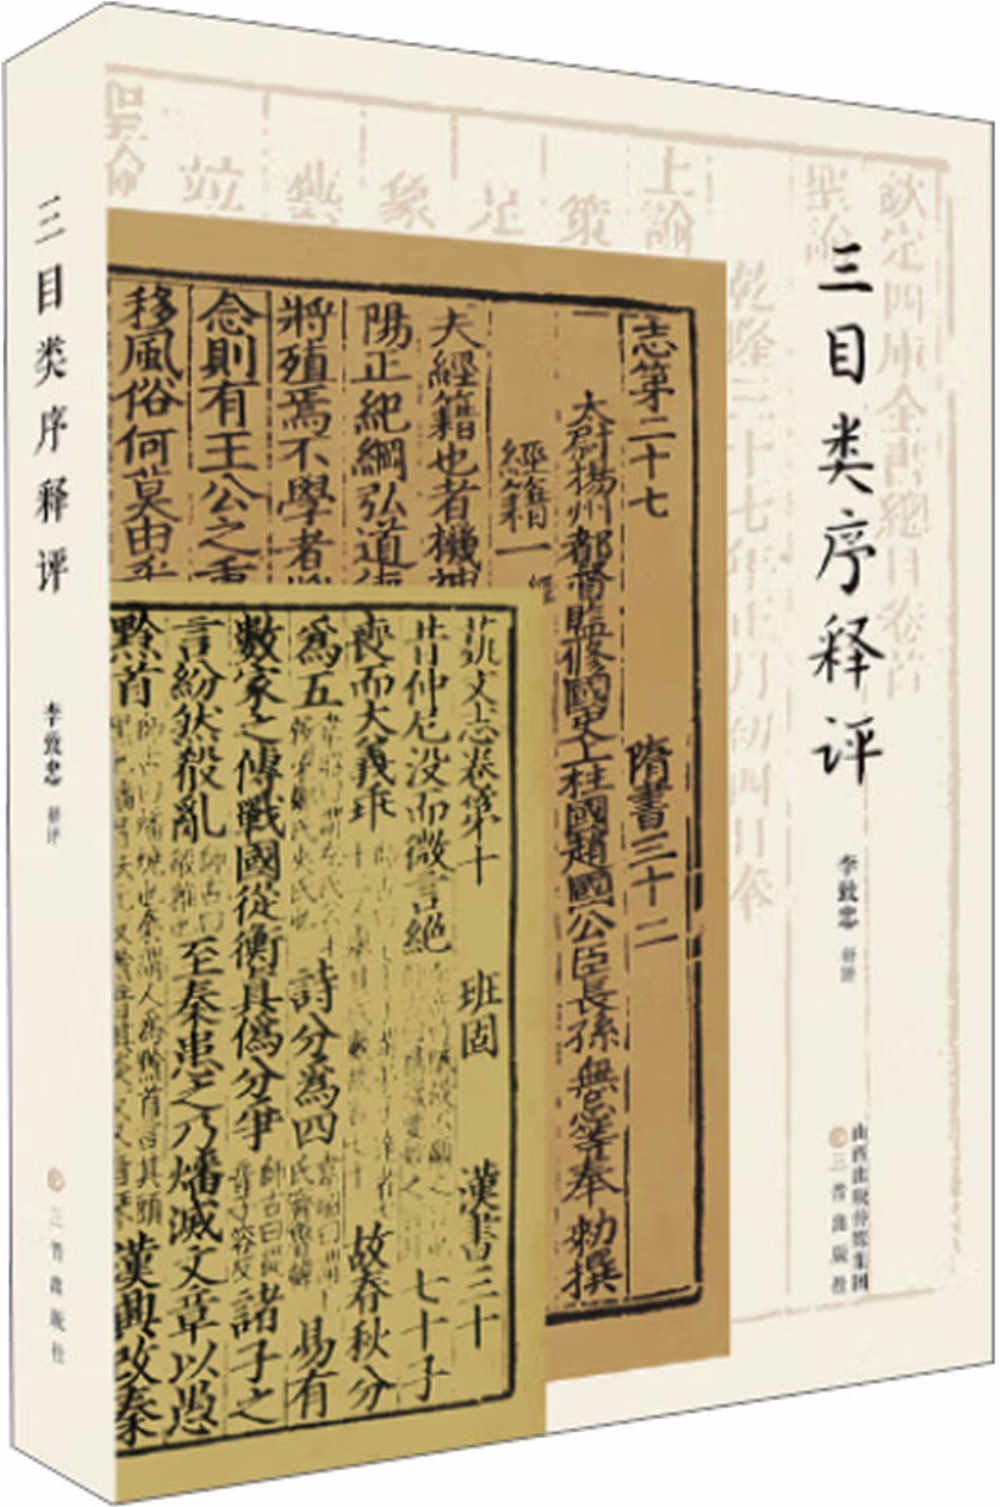 三目类序释评
李致忠 释评
三晋出版社
三目类序释评
李致忠 释评
山西出版传媒集团
三晋出版社
钦定四库全書總目卷首
聖諭
乾隆三十七年正月初四日奉
上諭
志第二十七 隋書三十二
太尉揚州都督監修國史上柱國趙國公臣長孫無忌等奉 勅撰
經籍一 經
夫經籍也者機神
陽正紀綱弘道德
將殖焉不學者將
念則有王公之重
移風俗何莫由乎
藝文志卷第十 班固 漢書三十
昔仲尼没而微言絶 七十子
喪而大義乖 故春秋分
爲五 詩分爲四 易有
數家之傳戰國從衡真僞分爭 諸子之
言紛然殽亂 至秦患之乃燔滅文章以愚
黔首 漢興改秦